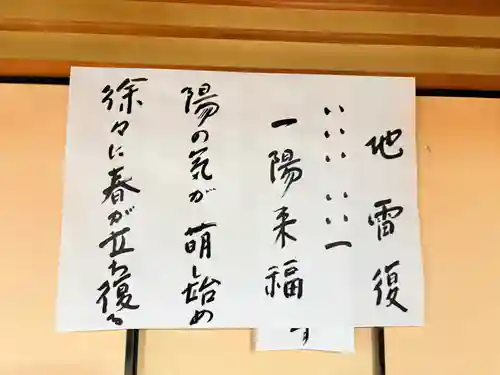 地雷復
一陽来福
陽の気が萌し始め
徐々に春が立ち復る
す